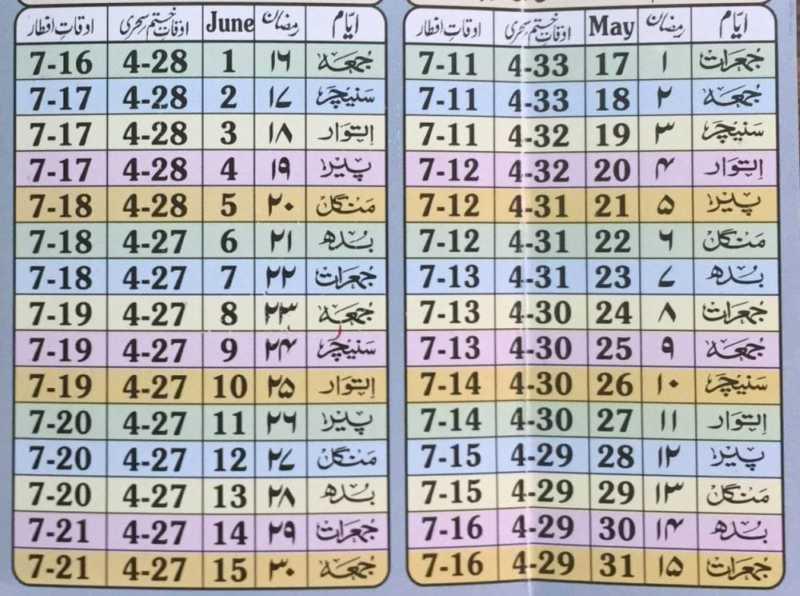 ایّام رمضان May اوقاتِ ختم سحری اوقاتِ افطار
جمعرات ۱ 17 4-33 7-11
جمعہ ۲ 18 4-33 7-11
سنیچر ۳ 19 4-32 7-11
اتوار ۴ 20 4-32 7-12
پیر ۵ 21 4-31 7-12
منگل ۶ 22 4-31 7-12
بدھ ۷ 23 4-31 7-13
جمعرات ۸ 24 4-30 7-13
جمعہ ۹ 25 4-30 7-13
سنیچر ۱۰ 26 4-30 7-14
اتوار ۱۱ 27 4-30 7-14
پیر ۱۲ 28 4-29 7-15
منگل ۱۳ 29 4-29 7-15
بدھ ۱۴ 30 4-29 7-16
جمعرات ۱۵ 31 4-29 7-16
ایّام رمضان June اوقاتِ ختم سحری اوقاتِ افطار
جمعہ ۱۶ 1 4-28 7-16
سنیچر ۱۷ 2 4-28 7-17
اتوار ۱۸ 3 4-28 7-17
پیر ۱۹ 4 4-28 7-17
منگل ۲۰ 5 4-28 7-18
بدھ ۲۱ 6 4-27 7-18
جمعرات ۲۲ 7 4-27 7-18
جمعہ ۲۳ 8 4-27 7-19
سنیچر ۲۴ 9 4-27 7-19
اتوار ۲۵ 10 4-27 7-19
پیر ۲۶ 11 4-27 7-20
منگل ۲۷ 12 4-27 7-20
بدھ ۲۸ 13 4-27 7-20
جمعرات ۲۹ 14 4-27 7-21
جمعہ ۳۰ 15 4-27 7-21